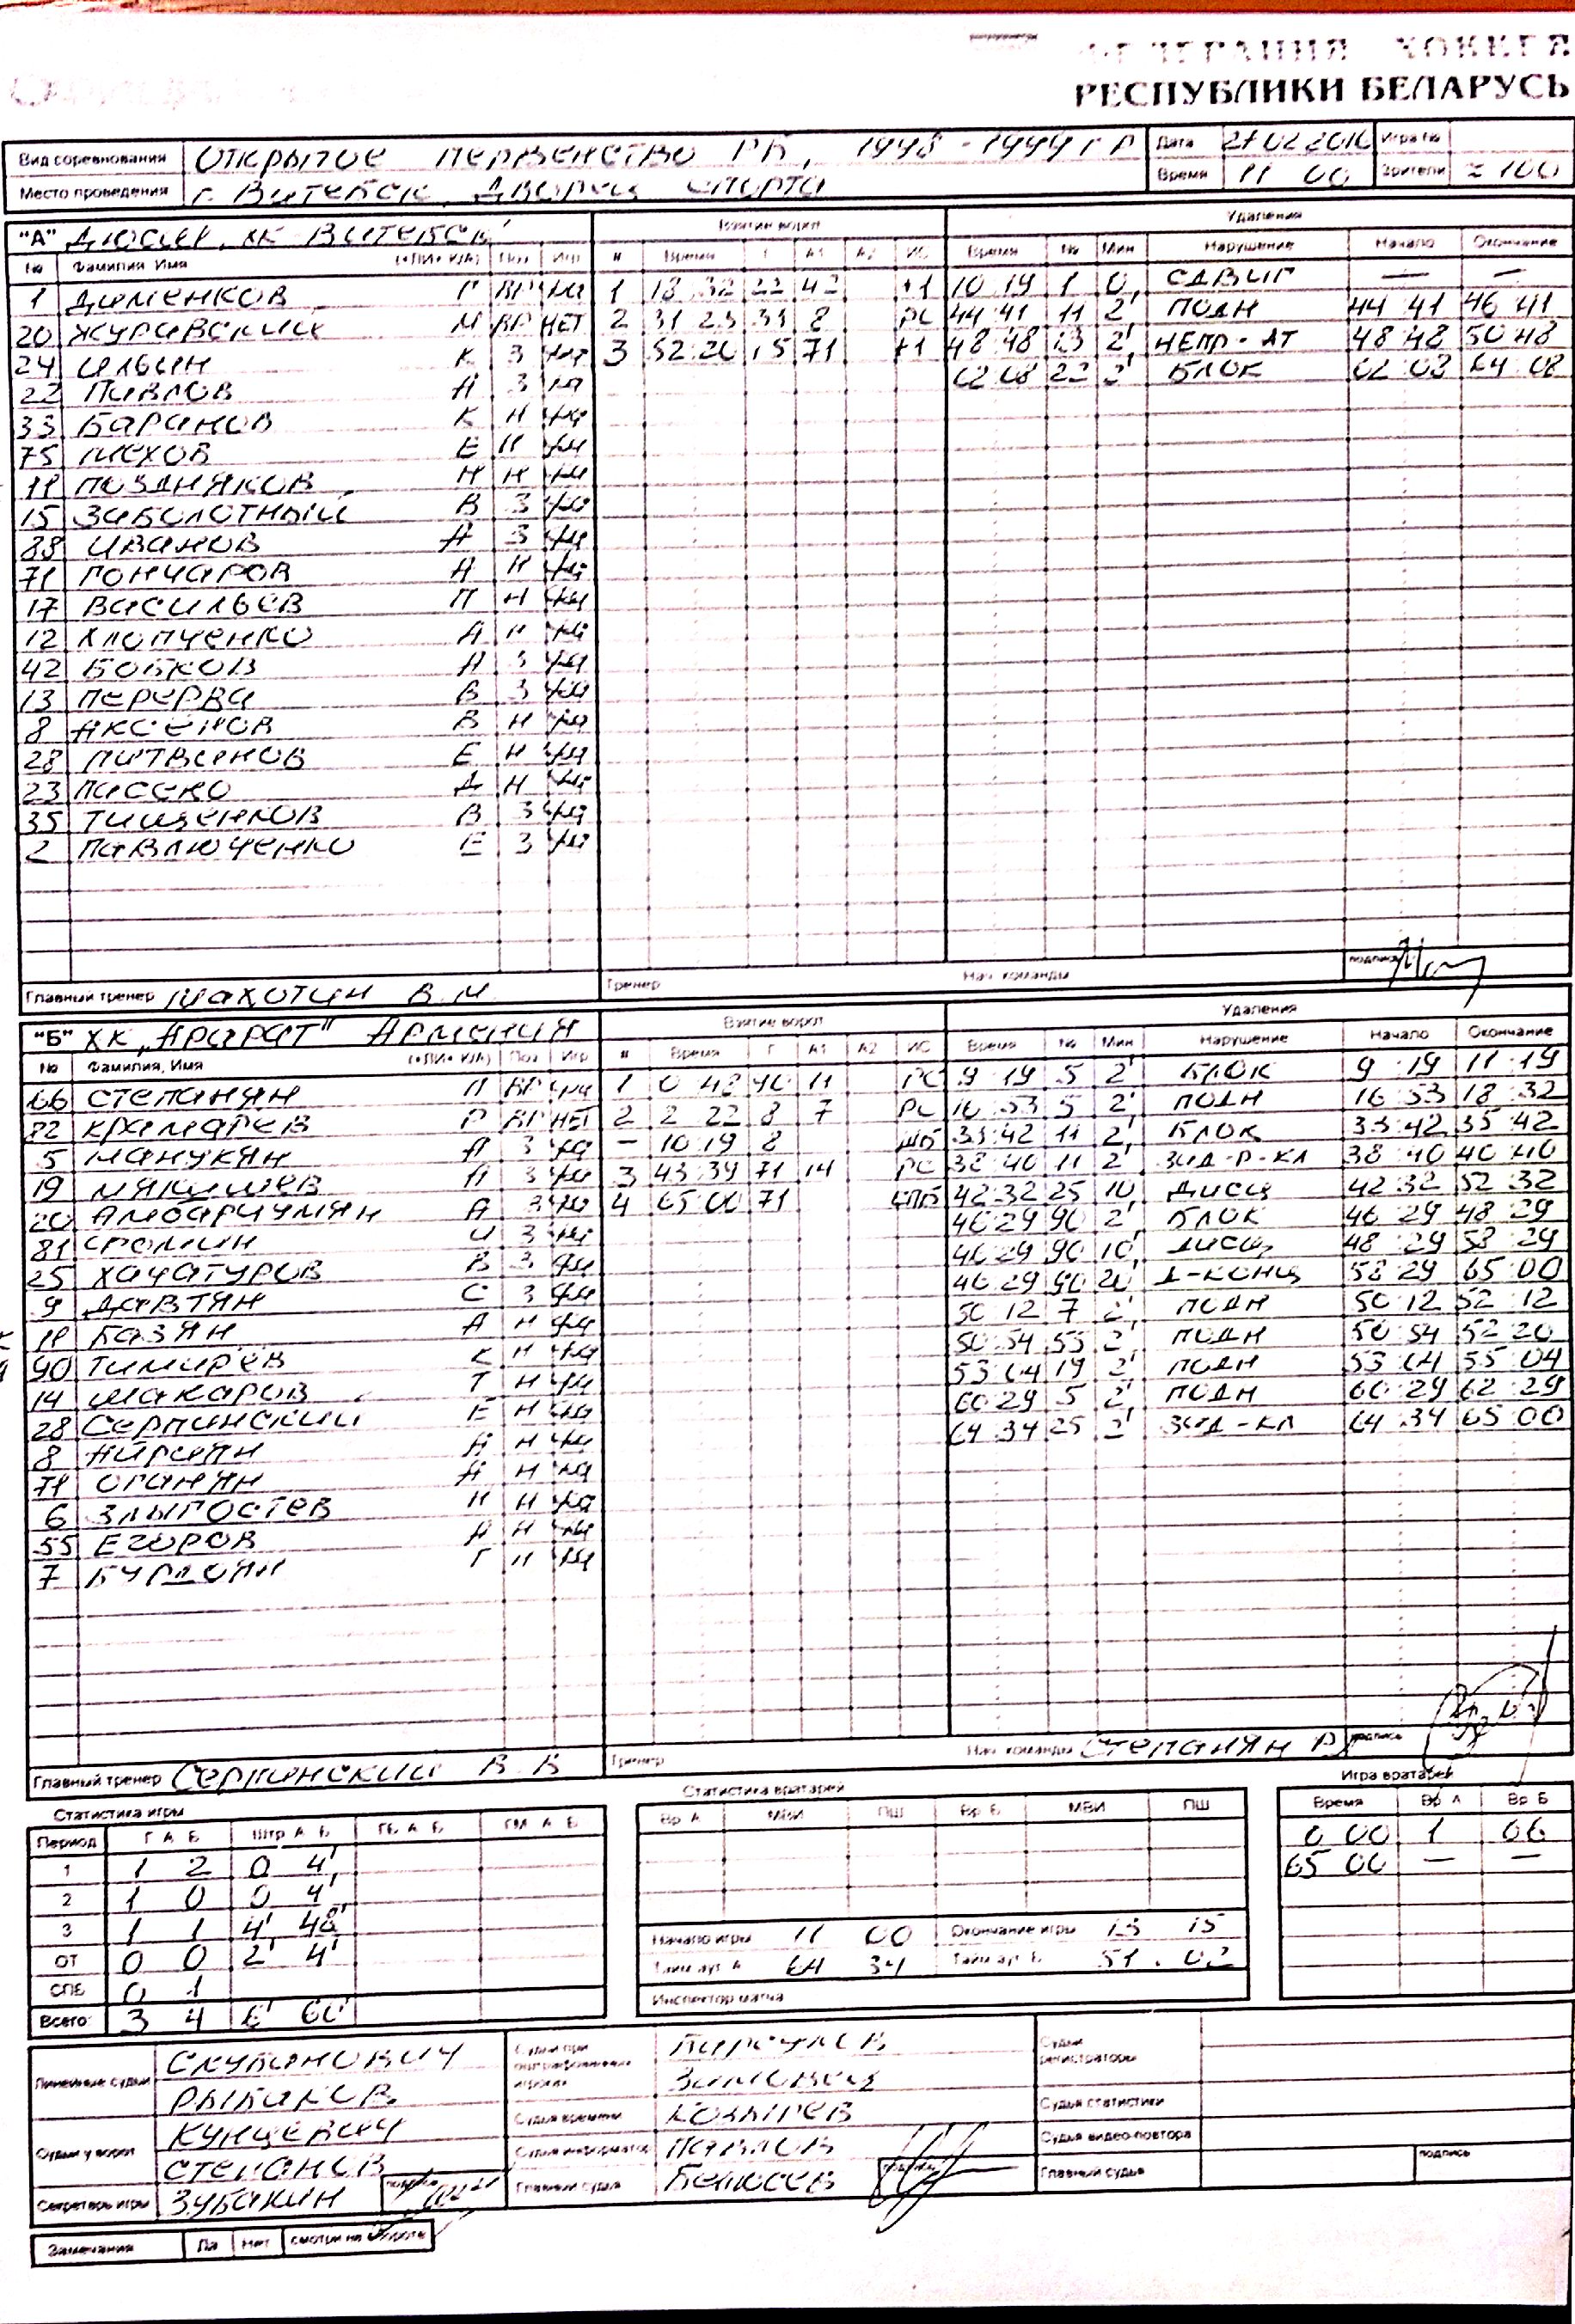 ФЕДЕРАЦИЯ ХОККЕЯ
РЕСПУБЛИКИ БЕЛАРУСЬ
Вид соревнования Открытое первенство РБ, 1998-1999 г р Дата 27 02 2016 Игра №
Место проведения г. Витебск, Дворец спорта Время 11 00 Зрители ≈ 100
"А" ДЮСШ, ХК Витебск Взятие ворот Удаления
№ Фамилия Имя (+ЛИ+ К/А) Поз Игр # Время Г А1 А2 ИС Время № Мин Нарушение Начало Окончание
1 Дименков Г ВР 1 18 32 22 42 +1 10 19 1 0 СДВИГ — —
20 Журавский М ВР НЕТ 2 31 23 33 8 РС 44 41 11 2' ПОДН 44 41 46 41
24 Ильин К З 3 52 20 15 71 +1 48 48 13 2' НЕПР-АТ 48 48 50 48
22 Павлов А З 62 08 22 2' БЛОК 62 08 64 08
33 Баранов К Н
75 Е Н
11 Поздняков Н Н
15 Заболотный В З
88 Иванов А З
71 Гончаров А Н
17 Васильев П Н
12 Хлопченко А Н
42 Бобков А З
13 Перерва В З
8 Аксёнов В Н
28 Литвинов Е Н
23 Пасеко Д Н
35 Тищенков В З
2 Павлюченко Е З
Главный тренер Махотин В.М. Тренер Нач команды подпись
"Б" ХК „Арарат" Армения Взятие ворот Удаления
№ Фамилия, Имя (+ЛИ+ К/А) Поз Игр # Время Г А1 А2 ИС Время № Мин Нарушение Начало Окончание
66 Степанян Л ВР 1 0 48 90 11 РС 9 19 5 2' БЛОК 9 19 11 19
82 Крамарев Р ВР НЕТ 2 2 22 8 7 РС 16 53 5 2' ПОДН 16 53 18 32
5 Манукян А З — 10 19 8 ШБ 33 42 11 2' БЛОК 33 42 35 42
19 Мякишев А З 3 43 39 71 14 РС 38 40 11 2' ЗАД-Р-КЛ 38 40 40 40
20 Амбарцумян А З 4 65 00 71 СПБ 42 32 25 10 ДИСЦ 42 32 52 32
81 Фомин И З 46 29 90 2' БЛОК 46 29 48 29
25 Хачатуров В З 46 29 90 10' ДИСЦ 48 29 58 29
9 Давтян С З 46 29 90 20' Д-КОНЦ 58 29 65 00
11 Базян А Н 50 12 7 2' ПОДН 50 12 52 12
90 Тимирёв К Н 50 54 55 2' ПОДН 50 54 52 20
14 Макаров Т Н 53 04 19 2' ПОДН 53 04 55 04
28 Серпинский Е Н 60 29 5 2' ПОДН 60 29 62 29
8 А Н 64 34 25 2' ЗАД-КЛ 64 34 65 00
71 Оганян А Н
6 Злыгостев Н Н
55 Егоров А Н
7 Бурдоян Г Н
Главный тренер Серпинский В.В Тренер Нач команды Степанян подпись
Статистика игры Статистика вратарей Игра вратарей
Период Г А Б Штр А Б ГБ А Б ГМ А Б Вр А МВИ ПШ Вр Б МВИ ПШ Время Вр А Вр Б
1 1 2 0 4' 0 00 1 66
2 1 0 0 4' 65 00 — —
3 1 1 4' 48' Начало игры 11 00 Окончание игры 13 15
ОТ 0 0 2' 4' Тайм аут А 64 34 Тайм аут Б 51 02
СПБ 0 1 Инспектор матча
Всего: 3 4 6' 60'
Линейные судьи Скубанович Судьи при оштрафованных игроках Судьи регистраторы
Рыбаков
Судьи у ворот Кунцевич Судья времени Козырев Судья статистики
Степанов Судья информатор Павлов Судья видео-повтора
Секретарь игры Зубакин подпись Главный судья подпись Главный судья подпись
Замечания Да Нет смотри на обороте